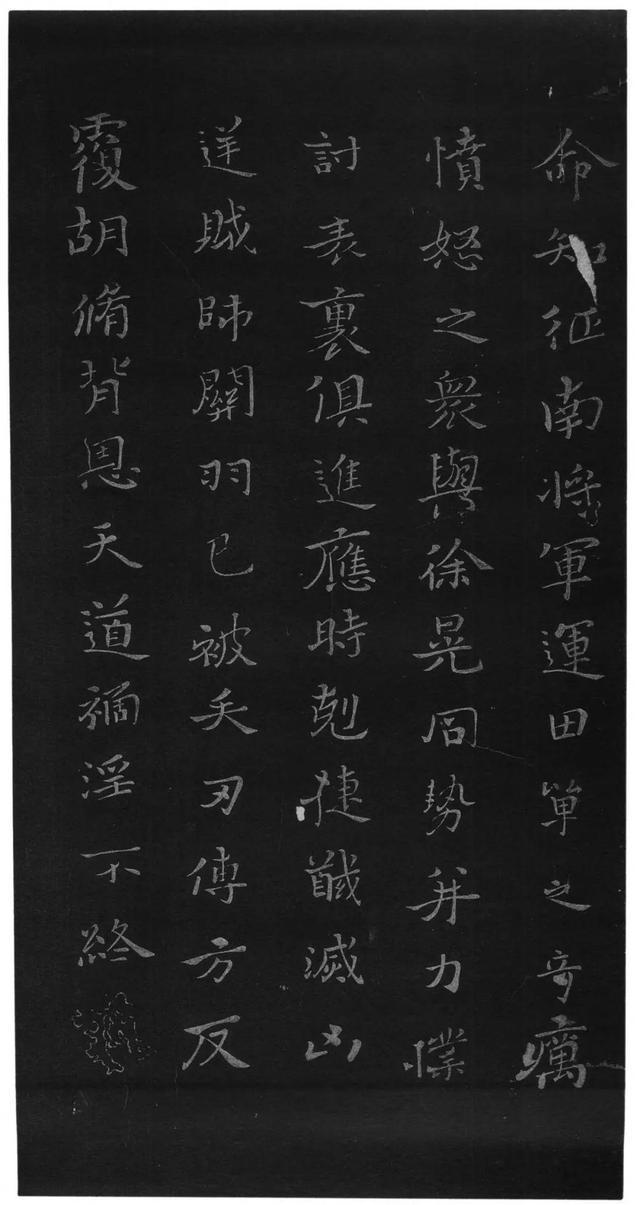 命知征南將軍運田單之奇癘
憤怒之衆與徐晃同勢并力撲
討表裏俱進應時剋捷馘滅凶
逆賊帥關羽已被矢刃傅方反
覆胡脩背恩天道禍淫不終